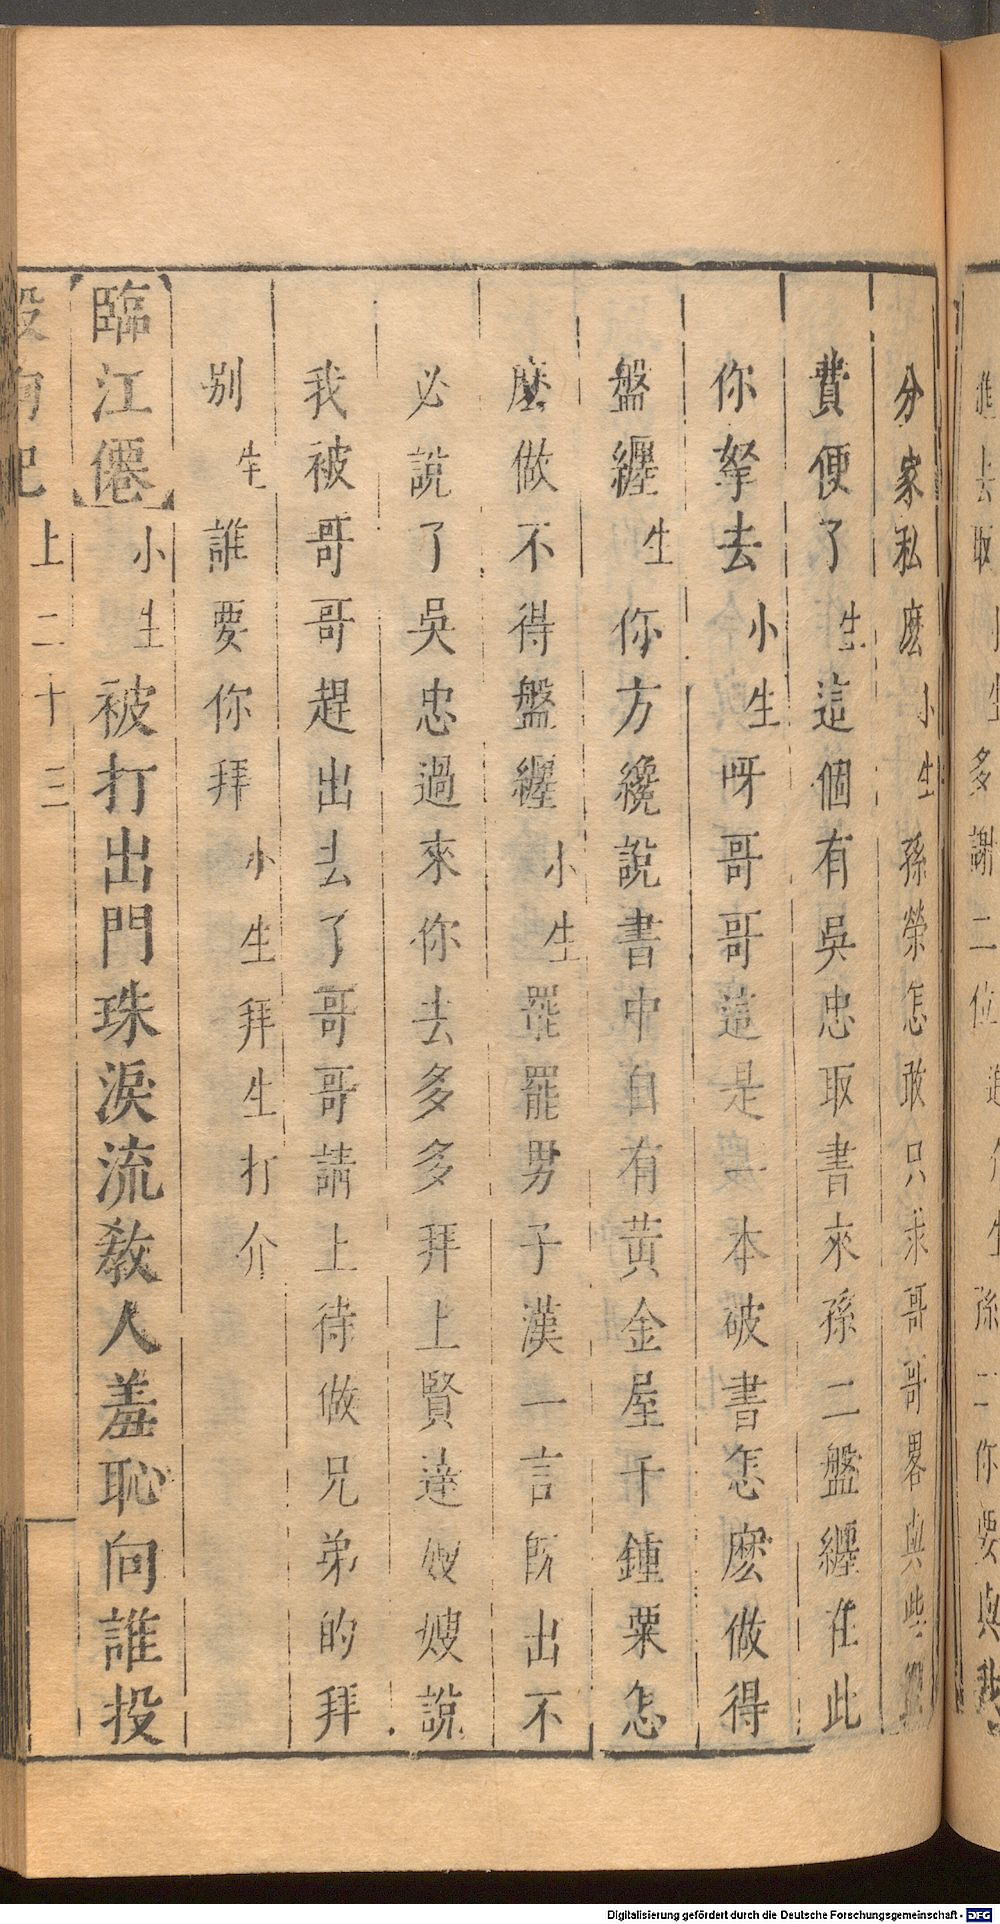 進去取 生多謝二位 生孫二你要與我
分家私麽小生孫榮怎敢只求哥哥畧與些
費便了生這個有吳忠取書來孫二盤纏在此
你拏去小生呀哥哥這是 本破書怎麽做得
盤纏生你方纔說書中自有黃金屋千鍾粟怎
麽做不得盤纏小生罷罷男子漢一言既出不
必說了吳忠過來你去多多拜上賢達嫂嫂說
我被哥哥趕出去了哥哥請上待做兄弟的拜
別生誰要你拜小生拜生打介
【臨江僊】小生被打出門珠淚流教人羞恥向誰投
殺狗記 上二十三
Digitalisierung gefördert durch die Deutsche Forschungsgemeinschaft - DFG